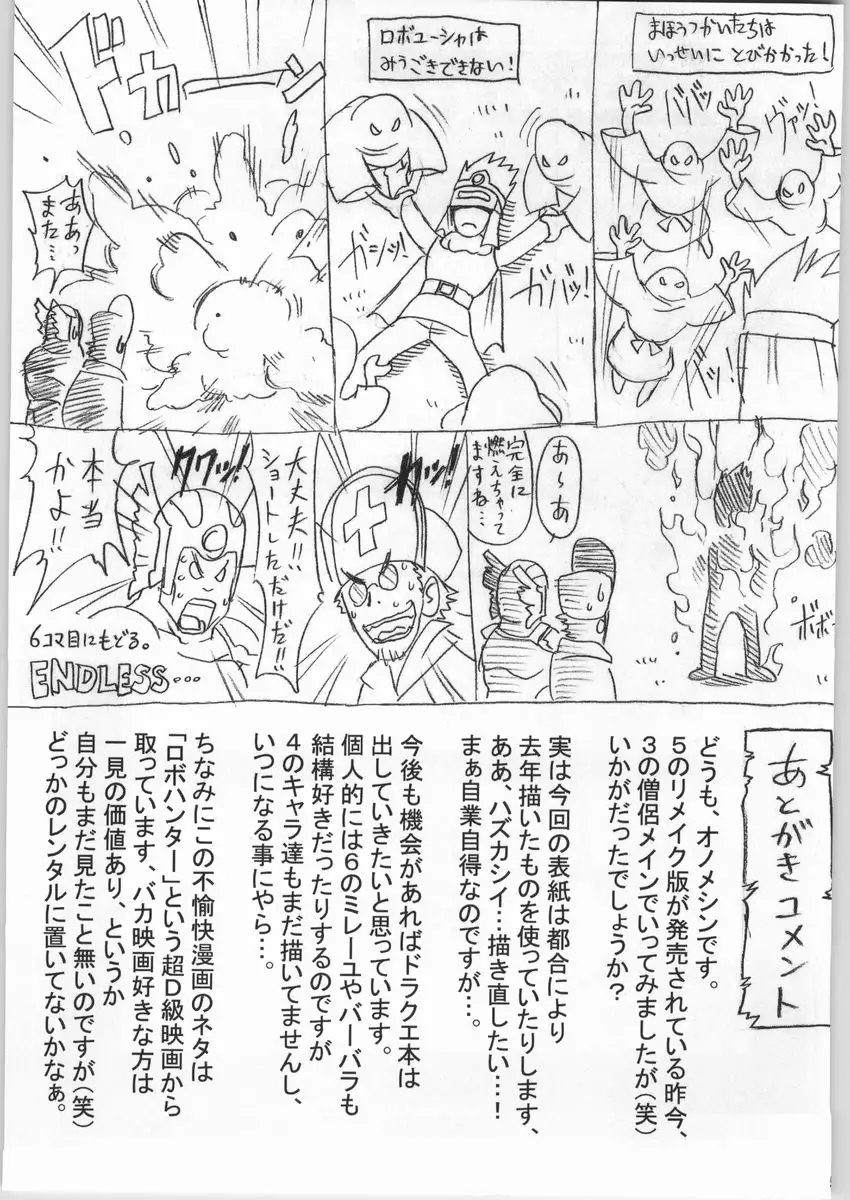 まほうつかいたちは
いっせいに とびかかった!
バババッ
ヴァッ!
ロボユーシャは
みうごきできない!
ガシッ!
ガバッ!
ドカーーン
ああっ
また…
ボボ
あ〜あ
完全に
燃えちゃって
ますね…
クワッ!
大丈夫!!
ショートしただけだ!!
クワッ!
本当
かよ!!
6コマ目にもどる。
ENDLESS…
あとがきコメント
どうも、オノメシンです。
5のリメイク版が発売されている昨今、
3の僧侶メインでいってみましたが(笑)
いかがだったでしょうか?
実は今回の表紙は都合により
去年描いたものを使っていたりします、
ああ、ハズカシイ…描き直したい…!
まぁ自業自得なのですが…。
今後も機会があればドラクエ本は
出していきたいと思っています。
個人的には6のミレーユやバーバラも
結構好きだったりするのですが
4のキャラ達もまだ描いてませんし、
いつになる事にやら…。
ちなみにこの不愉快漫画のネタは
「ロボハンター」という超D級映画から
取っています、バカ映画好きな方は
一見の価値あり、というか
自分もまだ見たこと無いのですが(笑)
どっかのレンタルに置いてないかなぁ。